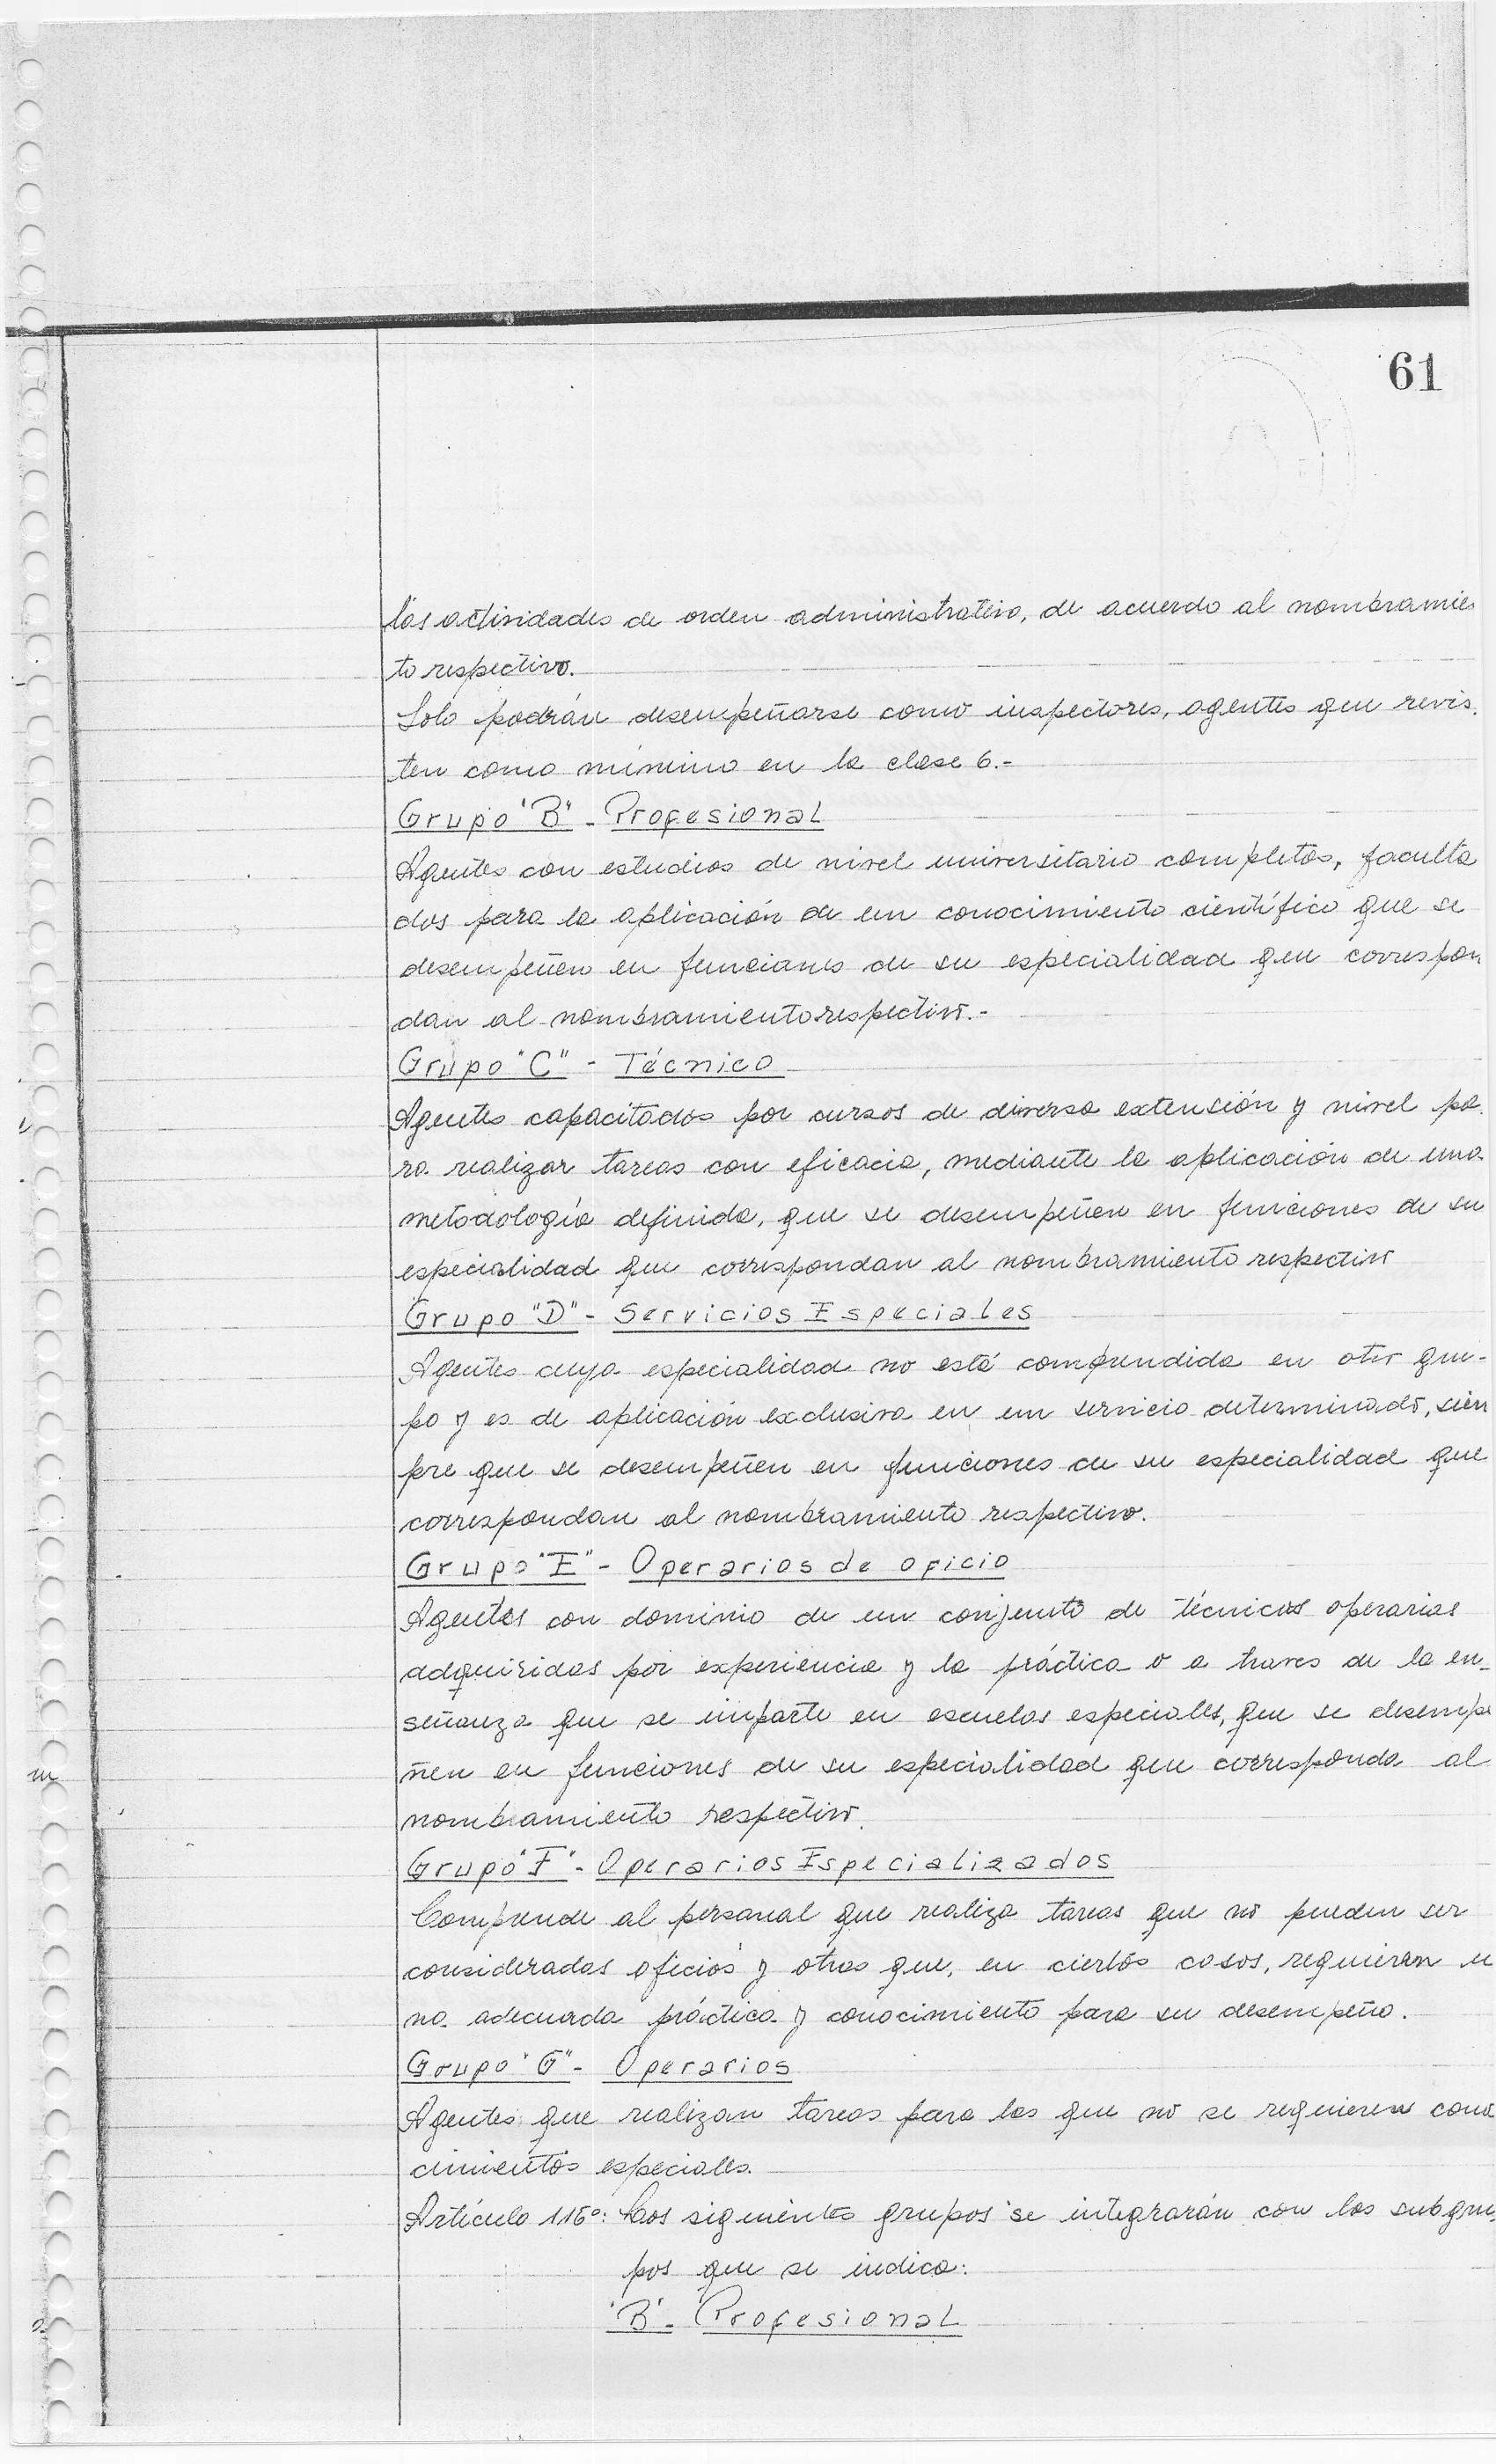 61
las actividades de orden administrativo, de acuerdo al nombramien
to respectivo.
Solo podrán desempeñarse como inspectores, agentes que revis.
ten como mínimo en la clase 6.-
Grupo "B" - Profesional
Agentes con estudios de nivel universitario completos, faculta
dos para la aplicación de un conocimiento científico que se
desempeñen en funciones de su especialidad que correspon
dan al nombramiento respectivo.-
Grupo "C" - Técnico
Agentes capacitados por cursos de diversa extensión y nivel pa.
ra realizar tareas con eficacia, mediante la aplicación de una
metodología definida, que se desempeñen en funciones de su
especialidad que correspondan al nombramiento respectivo
Grupo "D" - Servicios Especiales
Agentes cuya especialidad no está comprendida en otro gru-
po y es de aplicación exclusiva en un servicio determinado, siem
pre que se desempeñen en funciones de su especialidad que
correspondan al nombramiento respectivo.
Grupo "E" - Operarios de oficio
Agentes con dominio de un conjunto de técnicas operarias
adquiridas por experiencia y la práctica o a traves de la en-
señanza que se imparte en escuelas especiales, que se desempe
ñen en funciones de su especialidad que corresponda al
nombramiento respectivo.
Grupo "F" - Operarios Especializados
Comprende al personal que realiza tareas que no pueden ser
consideradas oficios y otras que, en ciertos casos, requieren u
na adecuada práctica y conocimiento para su desempeño.
Grupo "G" - Operarios
Agentes que realizan tareas para las que no se requieren cono
cimientos especiales.
Artículo 116º: Los siguientes grupos se integrarán con los subgru.
pos que se indica:
"B" - Profesional